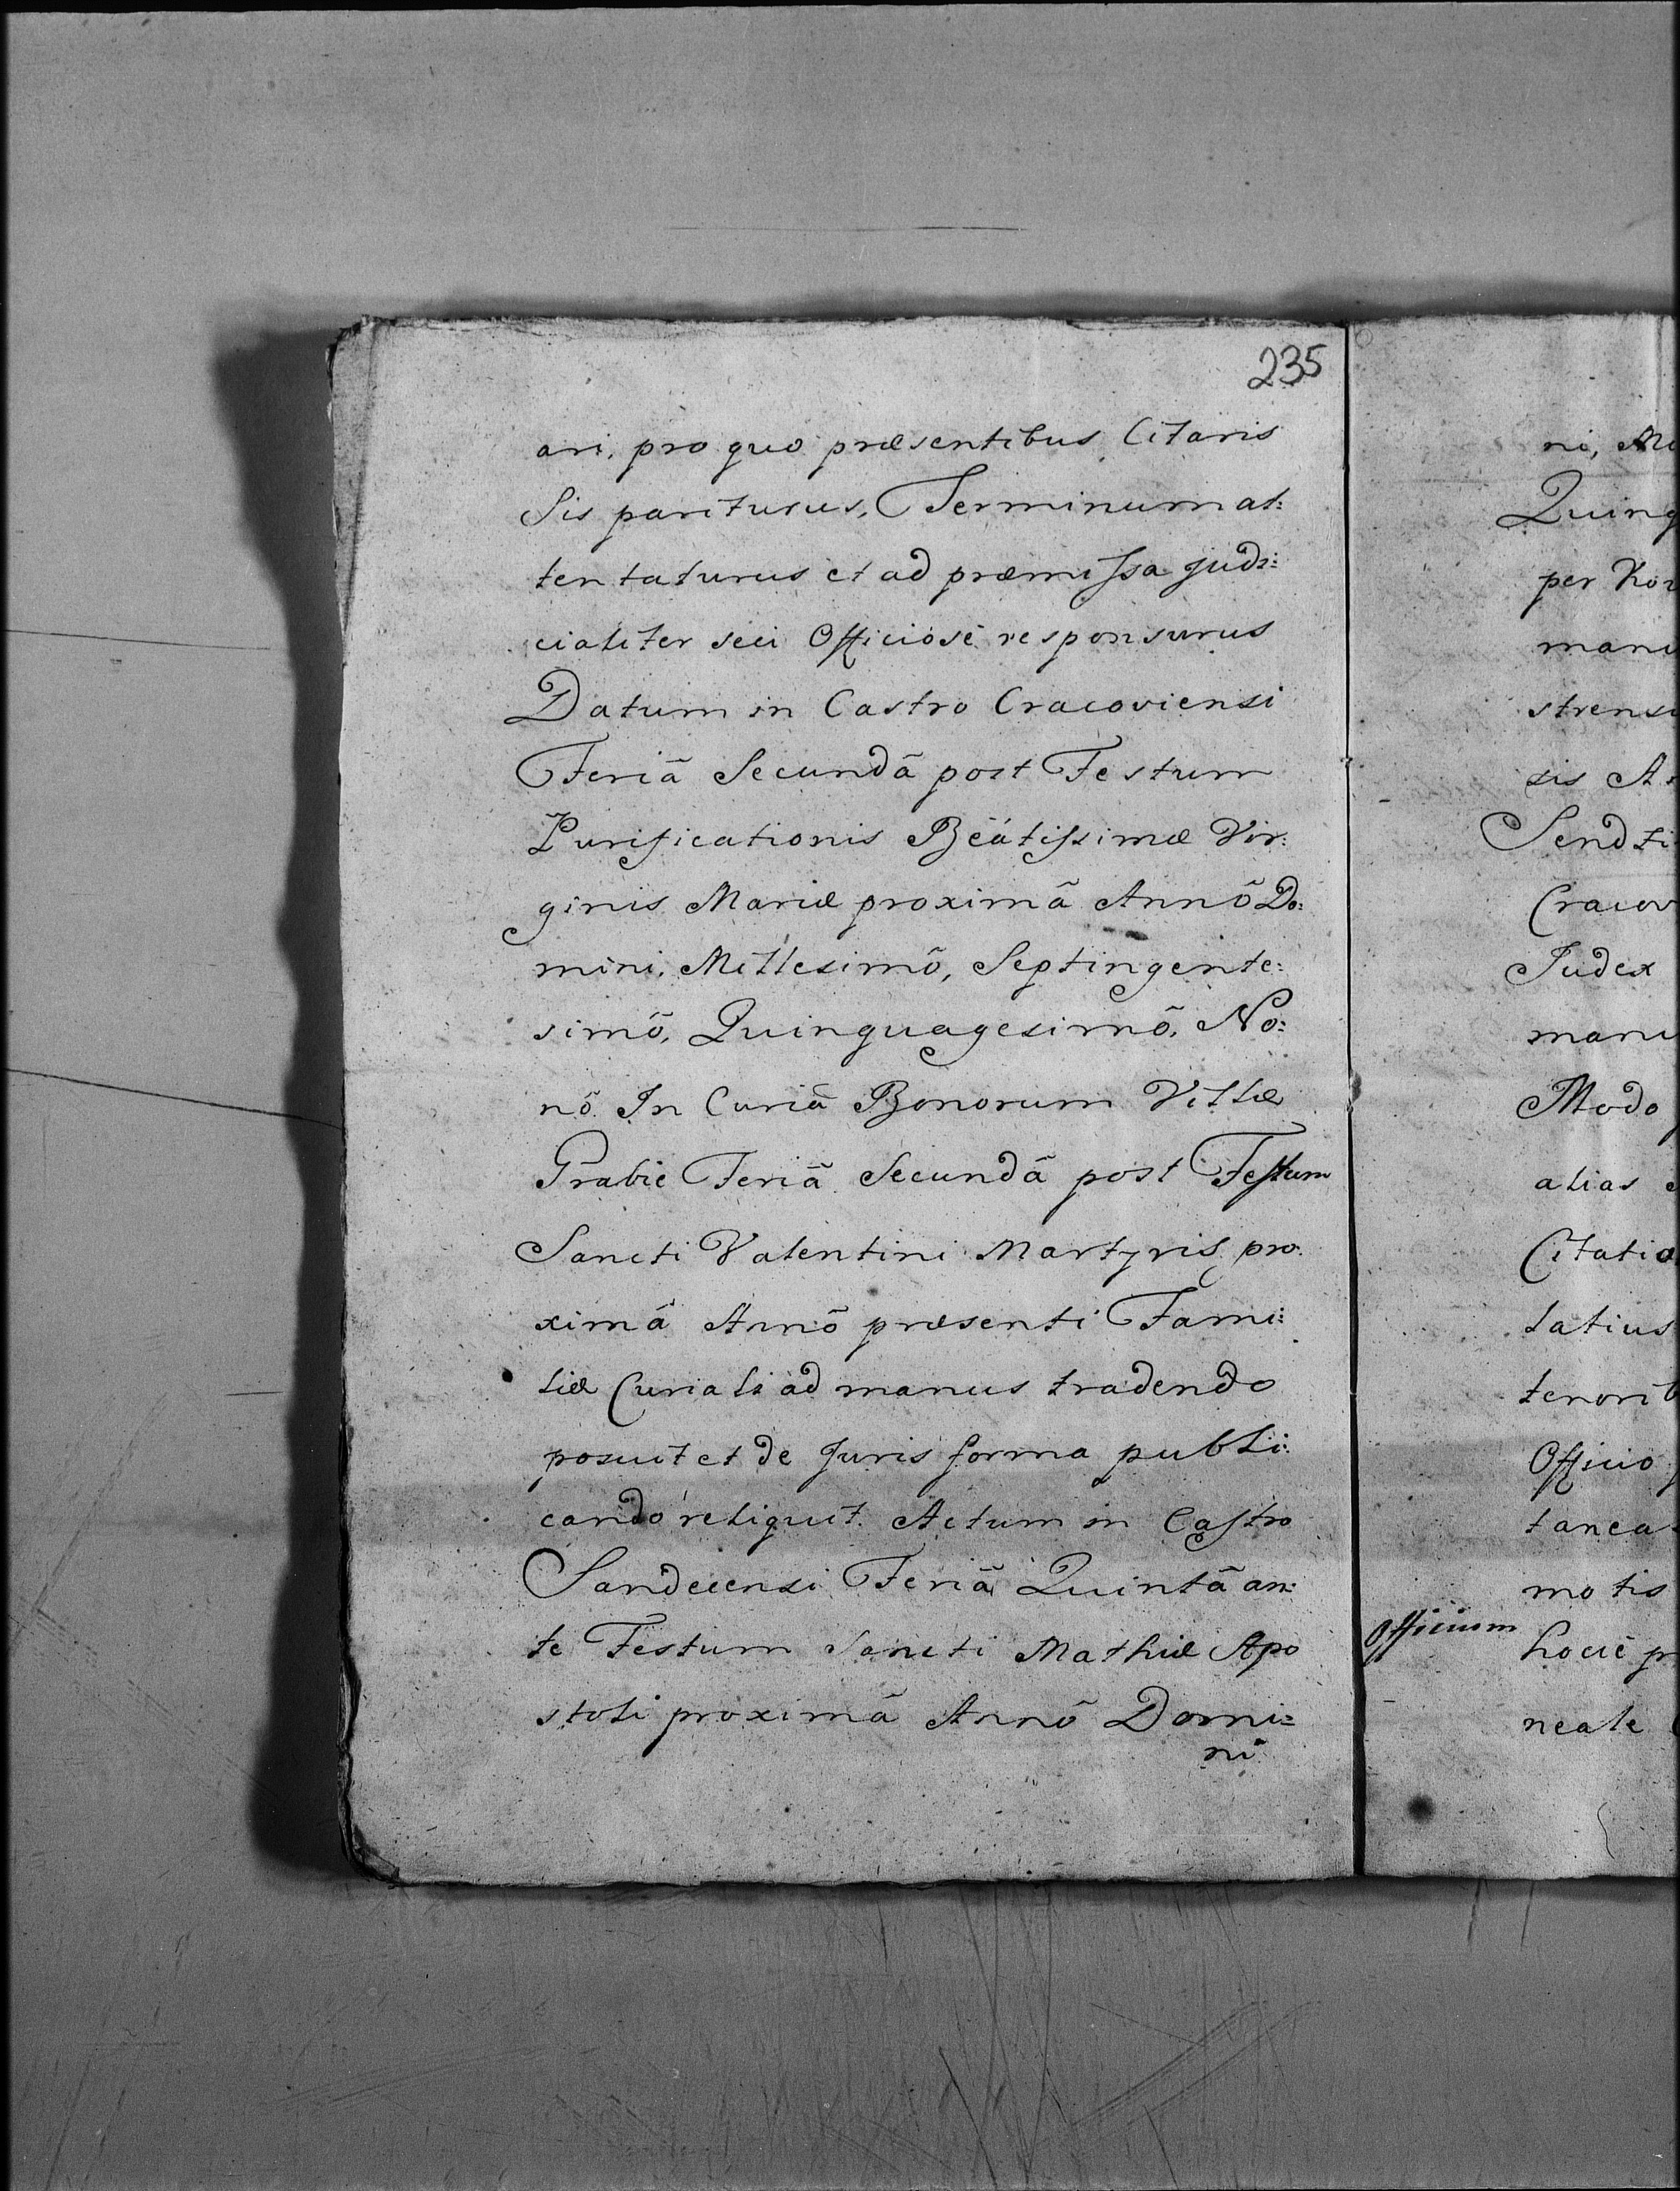 235
ari, pro quo præsentibus Citaris
Sis pariturus, Terminum at:
tentaturus et ad præmissa judi:
cialiter seu Officiosè responsurus
Datum in Castro Cracoviensi
Feriâ Secundâ post Festum
Purificationis Beátissimæ Vir:
ginis Mariæ proximâ Annô Do:
mini, Millesimô, Septingente:
simô, Quinquagesimô, No:
nô. In Curiâ Bonorum Villæ
Grabie Feriâ Secundâ post Festum
Sancti Valentini Martyris pro:
ximâ Annô præsenti Fami:
liæ Curiali ad manus tradendo
posuit et de Juris forma publi:
cando reliquit. Actum in Castro
Sandecensi Feriâ Quintâ an:
te Festum Sancti Mathiæ Apo
stoli proximâ Annô Domi:
ni
ni, Mi
Quinq
per
manu
strensi
sis A
Cracov
Judex
manu
Modo
alias
Citatio
latius
tenorib
Officio
tanea
motis
Officium
hocce pr
neale